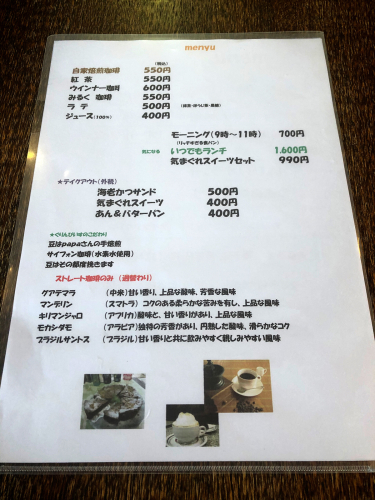 menyu
(税込)
自家焙煎珈琲 550円
紅茶 550円
ウインナー珈琲 600円
みるく珈琲 550円
ラテ 500円 (抹茶・ほうじ茶・黒糖)
ジュース(100%) 400円
モーニング(9時〜11時) 700円
(リッチすぎる食パン)
気になる いつでもランチ 1,600円
気まぐれスイーツセット 990円
★テイクアウト(外税)
海老かつサンド 500円
気まぐれスイーツ 400円
あん&バターパン 400円
★ぐりんぴいすのこだわり
豆はpapaさんの手焙煎
サイフォン珈琲(水素水使用)
豆はその都度挽きます
ストレート珈琲のみ (週替わり)
グアテマラ (中米)甘い香り、上品な酸味、芳香な風味
マンデリン (スマトラ) コクのある柔らかな苦みを有し、上品な風味
キリマンジャロ (アフリカ)酸味と、甘い香りがあり、上品な風味
モカシダモ (アラビア)独特の芳香があり、円熟した酸味、滑らかなコク
ブラジルサントス (ブラジル)甘い香りと共に飲みやすく親しみやすい風味